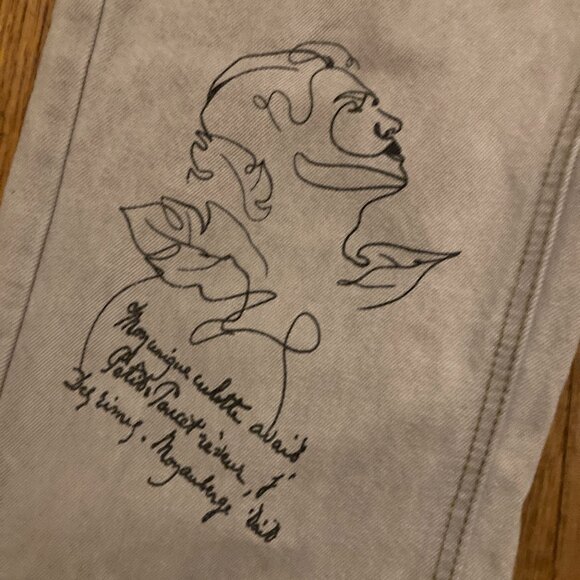 Mon unique culotte avait
Petit-Poucet rêveur, j'
Des rimes. Mon auberge était